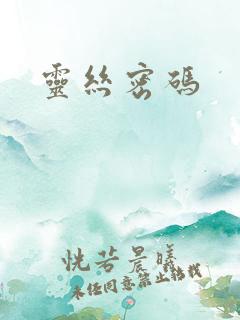 靈絲密碼
恍若晨曦
未经同意禁止转载